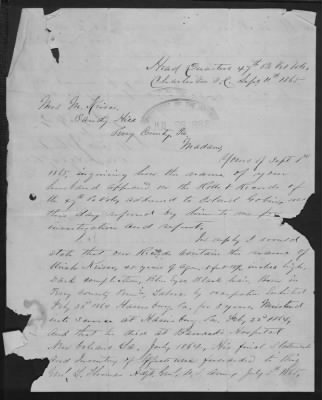 Head Quarters 47th Pa Vet Vols.
Charleston S.C. Sept 11th 1865
Mrs M. Kriser
Sandy Hill
Perry County, Pa.
Madam,
Yours of Sept 1st
1865, inquiring how the name of your
husband appeared on the Rolls & Records of
the 47th Pa Vols, addressed to Colonel Gobin, was
this day referred by him to me for
investigation and report.
In reply I would
state that our Records contain the name of
years of age, 5 feet inches high,
Dark complexion, Blue eyes, Black hair, Born in
Perry County Penn'a, Laborer by occupation, Enlisted
for 3 years, Mustered
into service at Harrisburg Pa. Feby 1864,
and that he died at Barracks Hospital
New Orleans La. July 1864, His final statement
and Inventory of Effects were forwarded to Brig
Genl L. Thomas Adjt. Genl. U.S. Army July 1864.